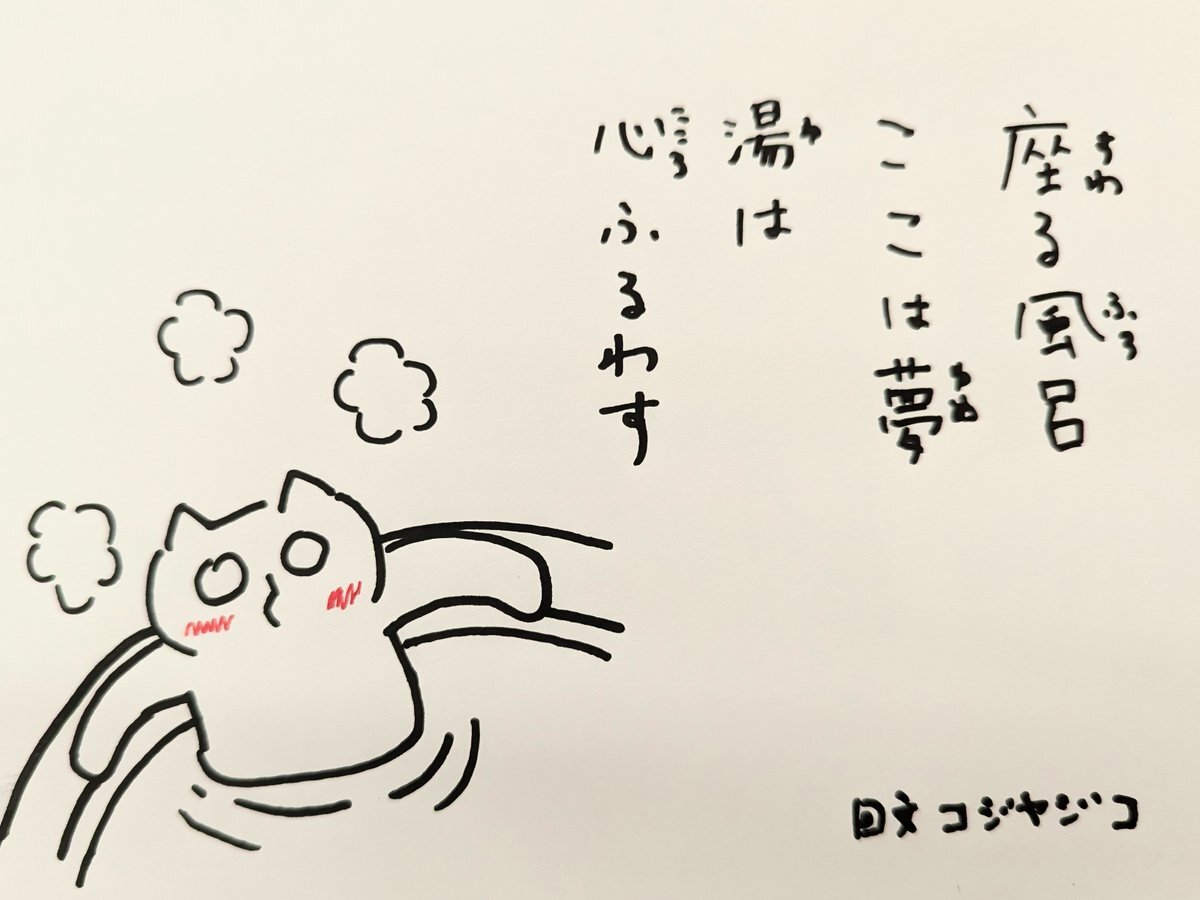 座る風呂
すわ ふろ
ここは夢
ゆめ
湯は
ゆ
心ふるわす
こころ
回文 コジヤジコ